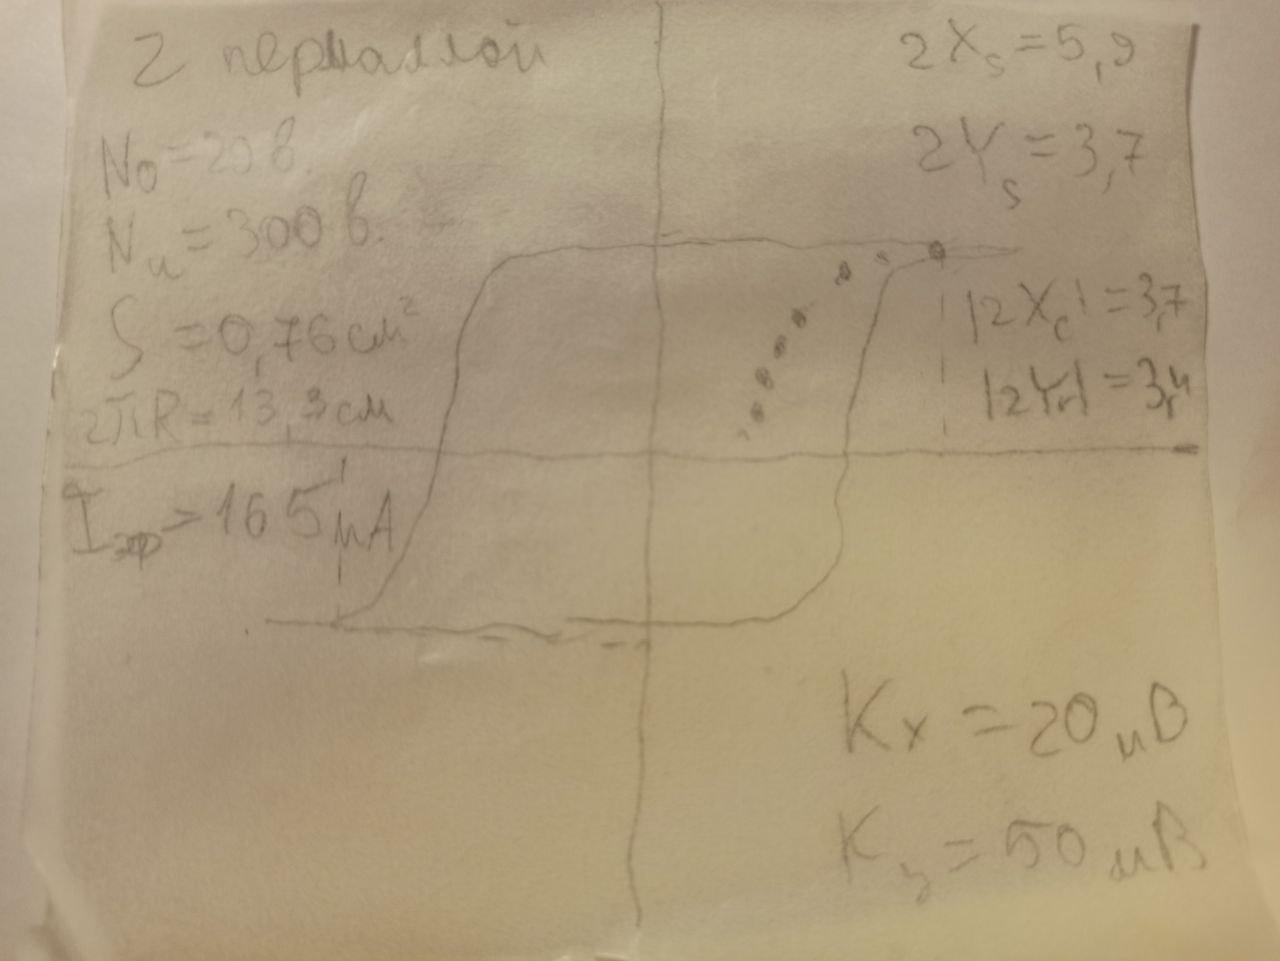 2 пермаллой
N₀ = 20 в.
Nᵤ = 300 в.
S = 0,76 см²
2πR = 13,3 см
Iэф > 165 мА
2Xₛ = 5,9
2Yₛ = 3,7
|2X_c| = 3,7
|2Yᵣ| = 3,4
Kx = 20 мВ
Ky = 50 мВ